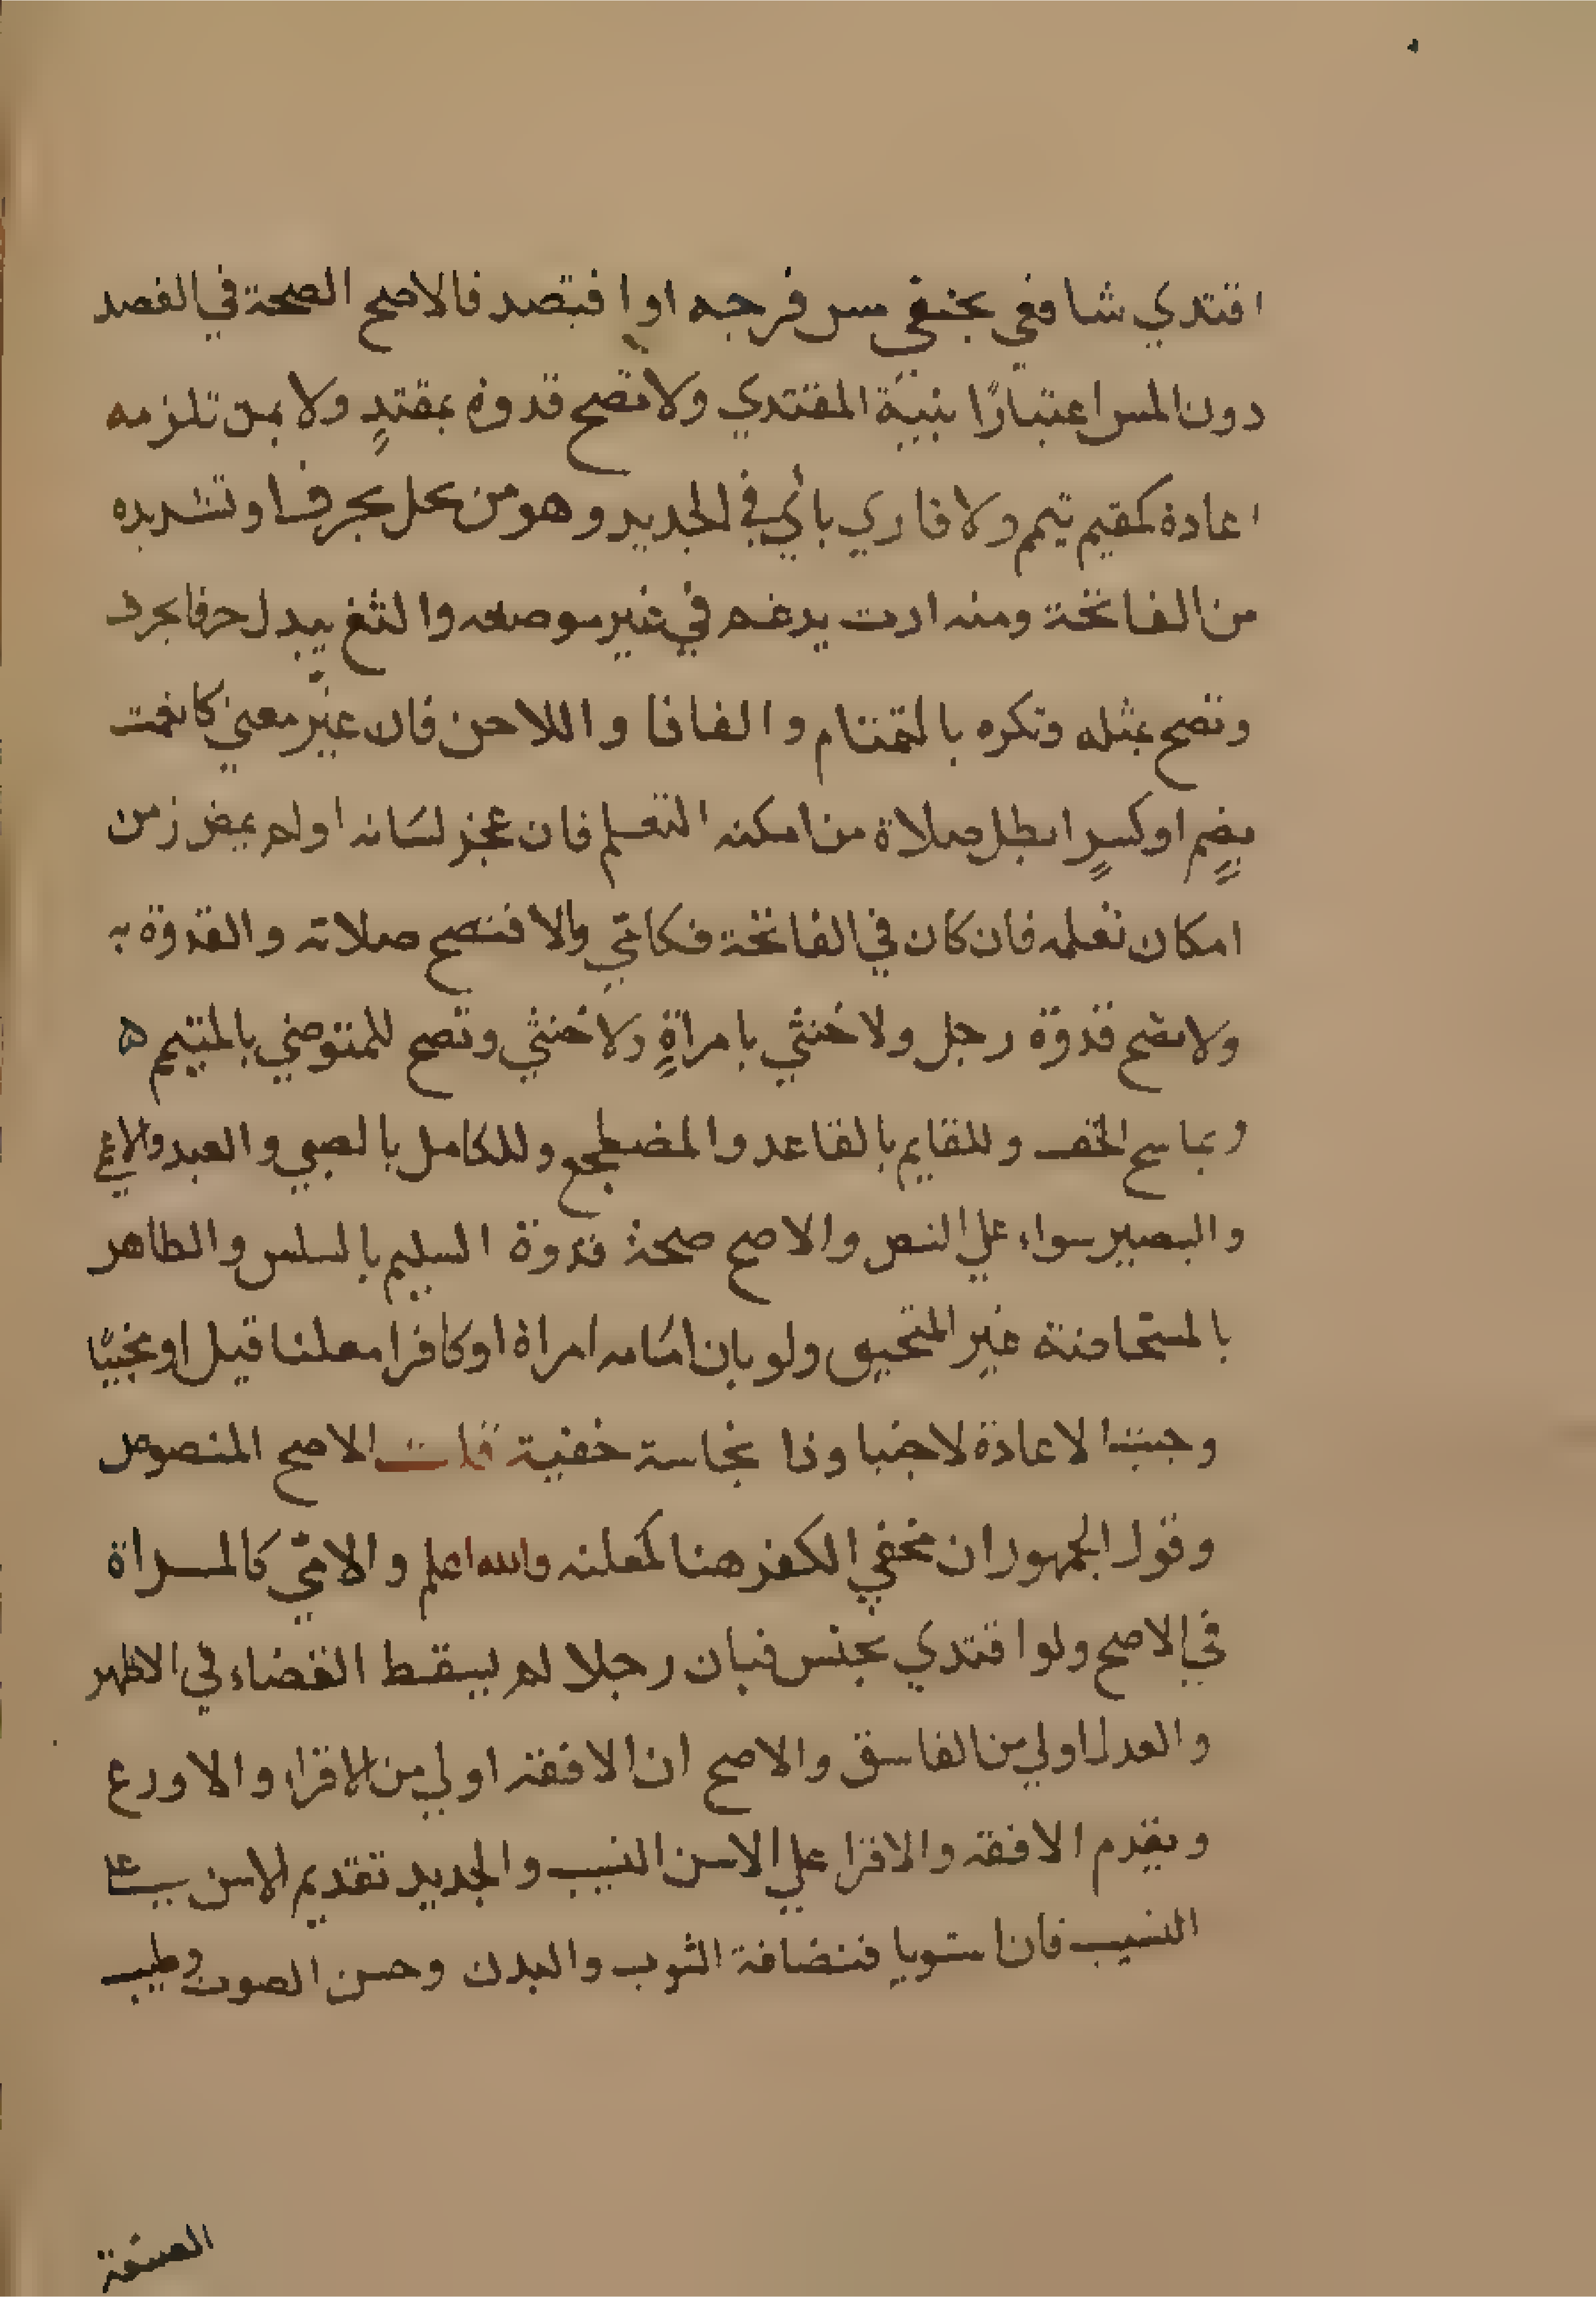 اقتدي شافعي بحنفي مس فرجه او افتصد فالاصح الصحة في الفصد
دون المس اعتبارًا بنية المقتدي ولا تصح قدوة بمقتدٍ ولا بمن تلزمه
اعادة كمقيم تيمم ولا قاري بأمي في الجديد وهو من يخل بحرف او تشديده
من الفاتحة ومنه ارت يدغم في غير موضعه والثغ يبدل حرفا بحرف
وتصح بمثله وتكره بالتمتام والفافا واللاحن فان غيّر معني كانعمت
بضمٍ او كسرٍ ابطل صلاة من امكنه التعلم فان عجز لسانه او لم يمض زمن
امكان تعلمه فان كان في الفاتحة فكامّي والا فتصح صلاته والقدوة به
ولا تصح قدوة رجل ولا خنثي بامراةٍ ولا خنثي وتصح للمتوضي بالمتيمم ه
وبماسح الخف وللقايم بالقاعد والمضطجع وللكامل بالصبي والعبد والاعمي
والبصير سواء علي النص والاصح صحة قدوة السليم بالسلس والطاهر
بالمستحاضة غير المتحيرة ولو بان امامه امراة او كافرا معلنا قيل او مخفيًا
وجبت الاعادة لا جنبا وذا نجاسة خفية قلت الاصح المنصوص
وقول الجمهور ان مخفي الكفر هنا كمعلنه والله اعلم والامّي كالمراة
في الاصح ولو اقتدي بخنثي فبان رجلا لم يسقط القضاء في الاظهر
والعدل اولي من الفاسق والاصح ان الافقه اولي من الاقرا والاورع
ويقدم الافقه والاقرا علي الاسن النسيب والجديد تقديم الاسن علي
النسيب فان استويا فنضافة الثوب والبدن وحسن الصوت وطيب
الصنعة